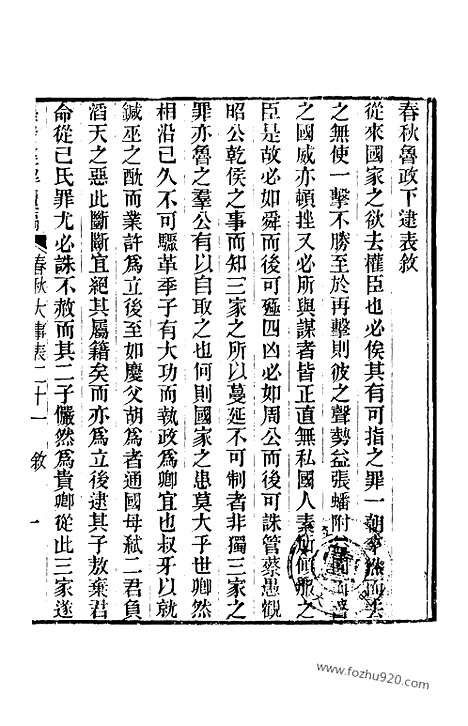 春秋魯政下逮表敘
從來國家之欲去權臣也必俟其有可指之罪一朝卒然而去
之無使一擊不勝至於再擊則彼之聲勢益張蟠附
之國威亦頓挫又必所與謀者皆正直無私國人素所傾服之
臣是故必如舜而後可殛四凶必如周公而後可誅管蔡愚觀
昭公乾侯之事而知三家之所以蔓延不可制者非獨三家之
罪亦魯之羣公有以自取之也何則國家之患莫大乎世卿然
相沿已久不可驟革季子有大功而執政爲卿宜也叔牙以就
鍼巫之酖而業許爲立後至如慶父胡爲者通國母弒二君負
滔天之惡此斷斷宜絕其屬籍矣而亦爲立後逮其子敖棄君
命從己氏罪尤必誅不赦而其二子儼然爲貴卿從此三家遂
春秋大事表二十一 敘 一
www.fozhu920.com